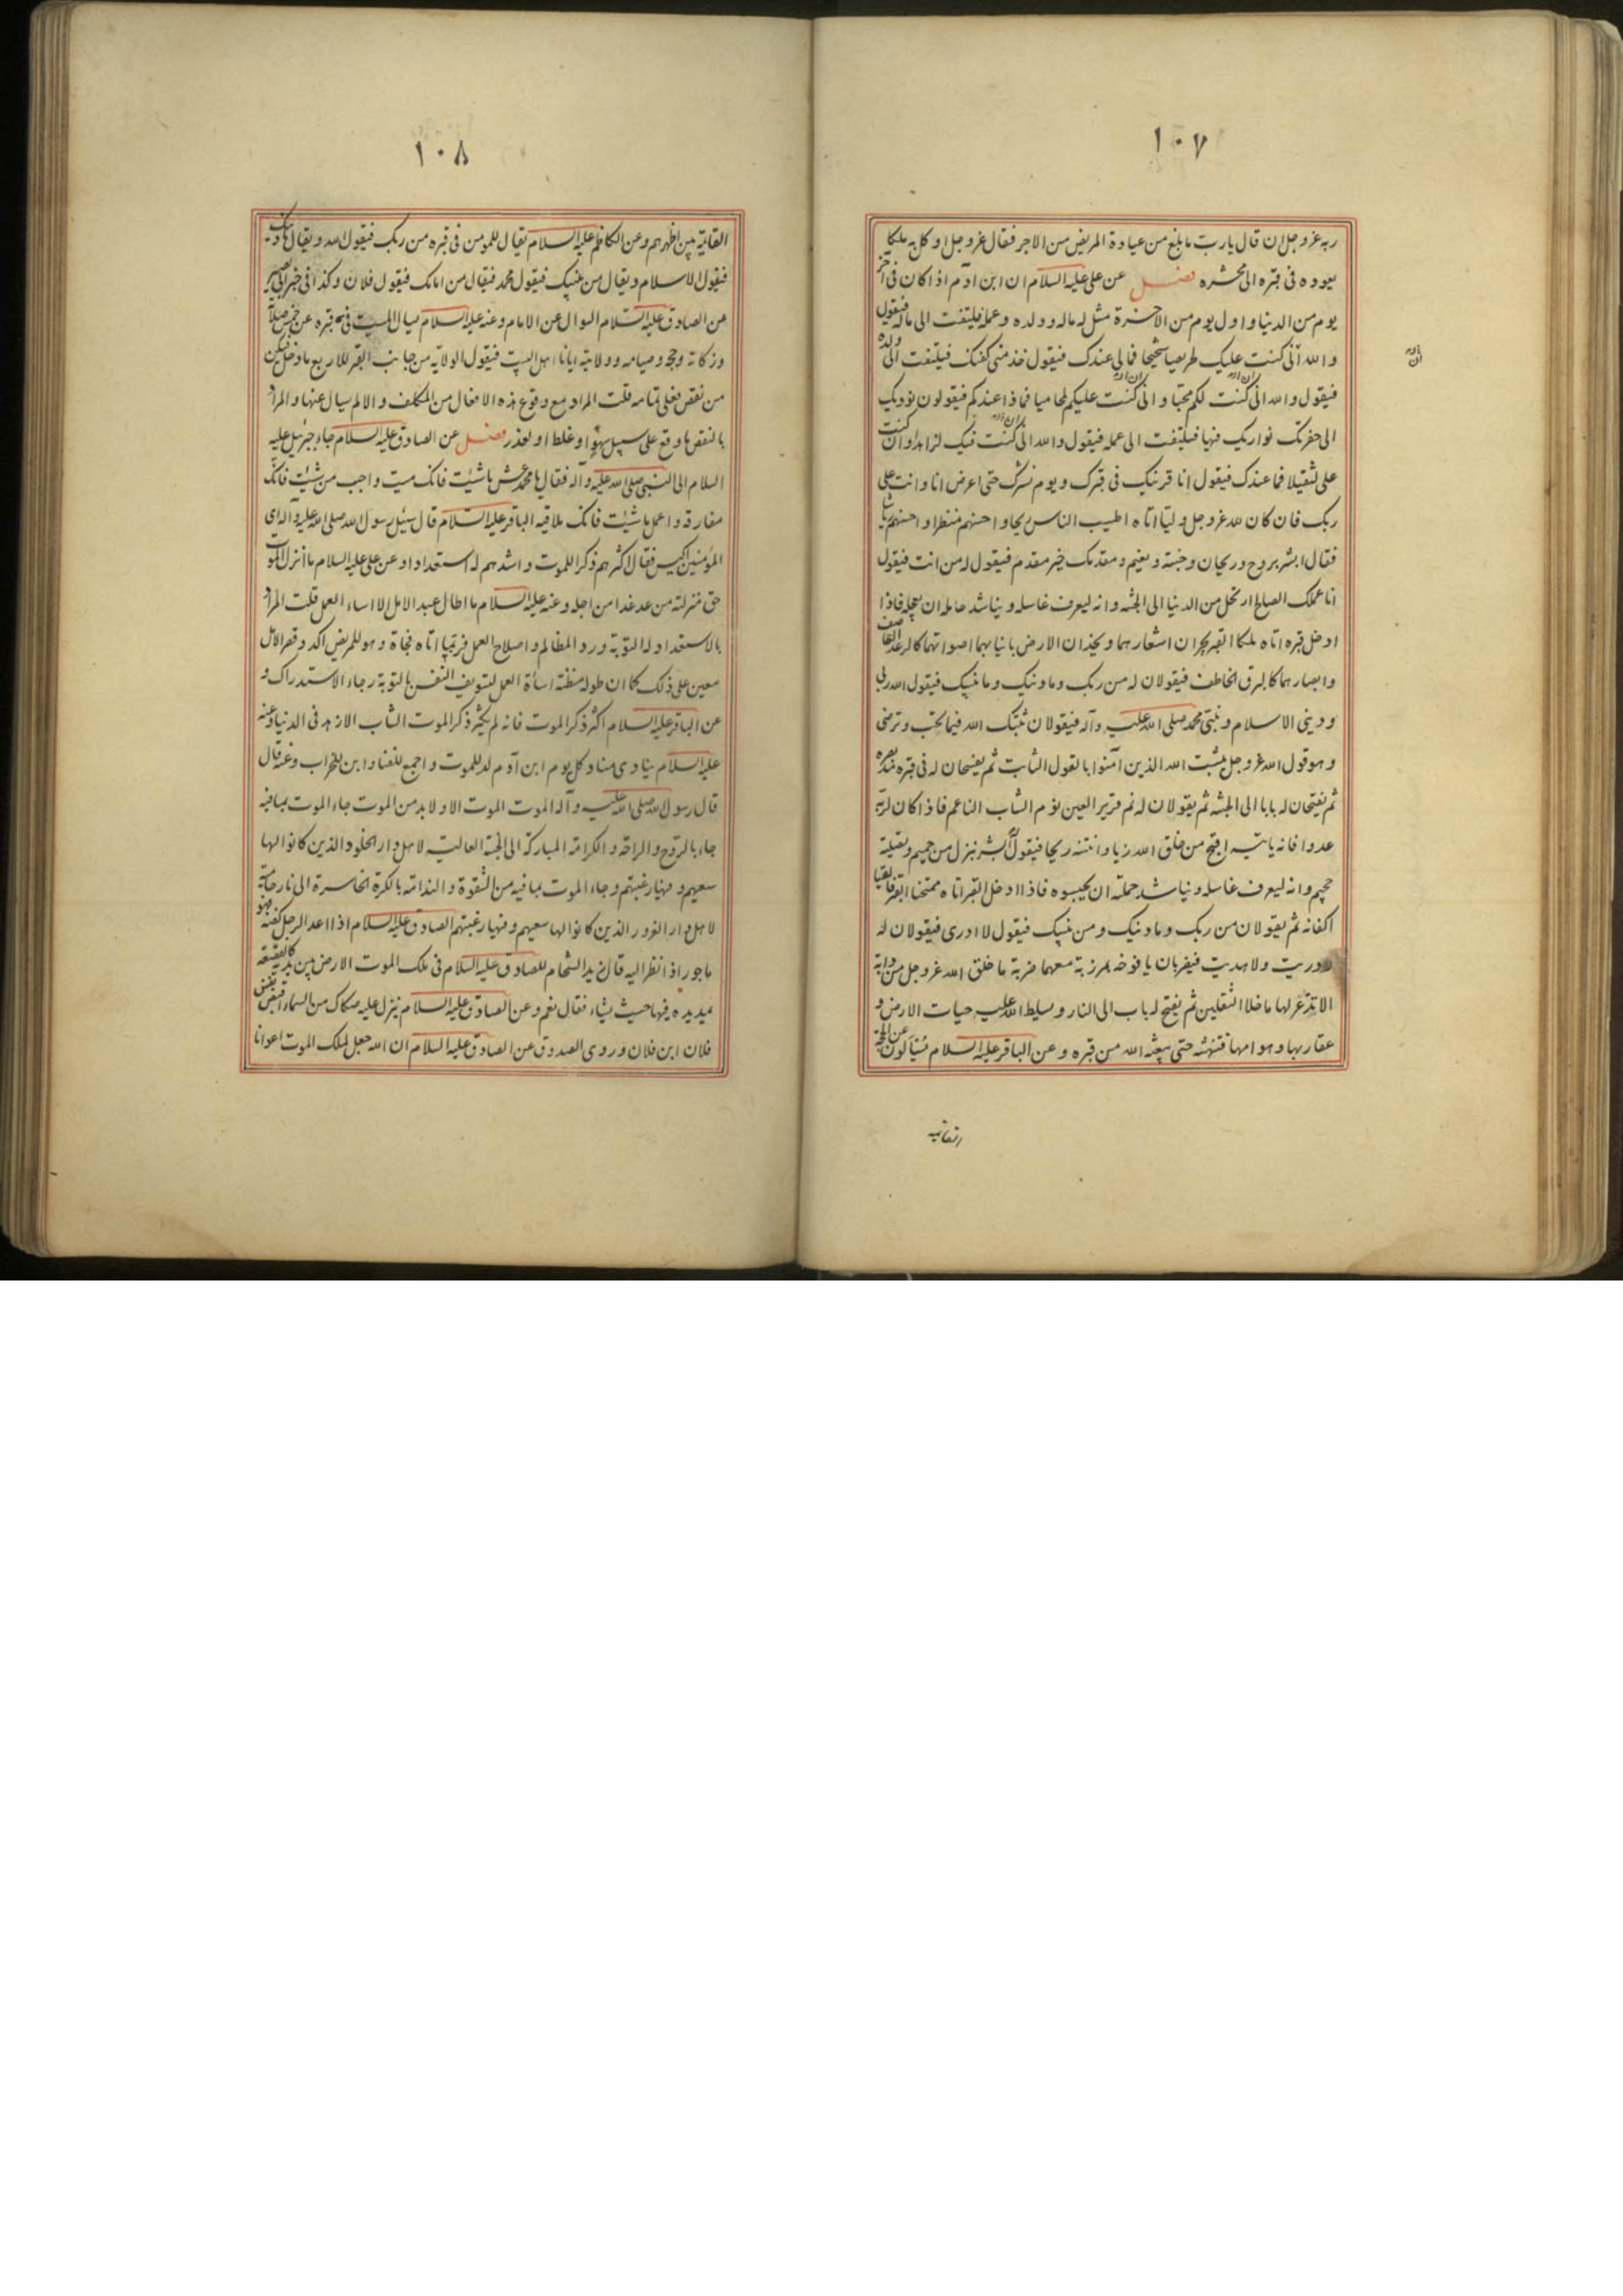 ١٠٧
ربه عز وجل ان قال يا رب ما بلغ من عيادة المريض من الاجر فقال عز وجل اوكل به ملكا
يعوده في قبره الى محشره فصل عن علي عليه السلام ان ابن آدم اذا كان في آخر
يوم من الدنيا واول يوم من الاخرة مثل له ماله وولده وعمله فيلتفت الى ماله فيقول
والله اني كنت عليك لحريصا شحيحا فما لي عندك فيقول خذ مني كفنك فيلتفت الى ولده
فيقول والله اني كنت لكم محبا واني كنت عليكم لمحاميا فماذا عندكم فيقولون نؤديك
الى حفرتك نواريك فيها فيلتفت الى عمله فيقول والله اني كنت فيك لزاهدا وان كنت
علي لثقيلا فما عندك فيقول انا قرينك في قبرك ويوم نشرك حتى اعرض انا وانت على
ربك فان كان لله عز وجل وليا اتاه اطيب الناس ريحا واحسنهم منظرا واحسنهم رياشا
فقال ابشر بروح وريحان وجنة ونعيم ومقدمك خير مقدم فيقول له من انت فيقول
انا عملك الصالح ارتحل من الدنيا الى الجنة وانه ليعرف غاسله ويناشد حامله ان يعجله فاذا
ادخل قبره اتاه ملكا القبر يجران اشعارهما ويخدان الارض بانيابهما اصواتهما كالرعد القاصف
وابصارهما كالبرق الخاطف فيقولان له من ربك وما دينك وما نبيك فيقول الله ربي
وديني الاسلام ونبيي محمد صلى الله عليه وآله فيقولان ثبتك الله فيما تحب وترضى
وهو قول الله عز وجل يثبت الله الذين آمنوا بالقول الثابت ثم يفسحان له في قبره مد بصره
ثم يفتحان له بابا الى الجنة ثم يقولان له نم قرير العين نوم الشاب الناعم فاذا كان لربه
عدوا فانه ياتيه اقبح من خلق الله زيا وانتنه ريحا فيقول ابشر بنزل من حميم وتصلية
جحيم وانه ليعرف غاسله ويناشد حملته ان يحبسوه فاذا ادخل القبر اتاه ممتحنا القبر فالقيا
اكفانه ثم يقولان من ربك وما دينك ومن نبيك فيقول لا ادري فيقولان له
لا دريت ولا هديت فيضربان يافوخه بمرزبة معهما ضربة ما خلق الله عز وجل من دابة
الا تذعر لها ما خلا الثقلين ثم يفتح له باب الى النار ويسلط الله عليه حيات الارض و
عقاربها وهوامها فتنهشه حتى يبعثه الله من قبره وعن الباقر عليه السلام يسألون عن الحجة
القائمة
١٠٨
القائمة بين اظهرهم وعن الكاظم عليه السلام يقال للمؤمن في قبره من ربك فيقول الله ويقال ما دينك
فيقول الاسلام ويقال من نبيك فيقول محمد فيقال من امامك فيقول فلان وكذا في خبر ابي بصير
عن الصادق عليه السلام السؤال عن الامام وعنه عليه السلام يسال الميت في قبره عن خمس صلاته
وزكاته وحجه وصيامه وولايته ايانا اهل البيت فيقول الولاية من جانب القبر للاربع ما دخل فيكن
من نقص فعلي تمامه قلت المراد مع وقوع هذه الافعال من المكلف والا لم يسال عنها والمراد
بالنقص ما وقع على سبيل سهو او غلط او لعذر فصل عن الصادق عليه السلام جاء جبرئيل عليه
السلام الى النبي صلى الله عليه وآله فقال يا محمد عش ما شئت فانك ميت واحبب من شئت فانك
مفارقه واعمل ما شئت فانك ملاقيه الباقر عليه السلام قال سئل رسول الله صلى الله عليه وآله اي
المؤمنين اكيس فقال اكثرهم ذكرا للموت واشدهم له استعدادا وعن علي عليه السلام ما انزل الموت
حق منزلته من عد غدا من اجله وعنه عليه السلام ما اطال عبد الامل الا اساء العمل قلت المراد
بالاستعداد له التوبة ورد المظالم واصلاح العمل فربما اتاه فجاة وهو للمريض آكد وقصر الامل
معين على ذلك كما ان طوله مظنة اساءة العمل لتسويف النفس بالتوبة رجاء الاستدراك و
عن الباقر عليه السلام اكثر ذكر الموت فانه لم يكثر ذكر الموت انسان الا زهد في الدنيا وعنه
عليه السلام ينادي مناد كل يوم ابن آدم لد للموت واجمع للفناء وابن للخراب وعنه قال
قال رسول الله صلى الله عليه وآله الموت الموت الا ولا بد من الموت جاء الموت بما فيه
جاء بالروح والراحة والكرامة المباركة الى الجنة العالية لاهل دار الخلود الذين كانوا لها
سعيهم وفيها رغبتهم وجاء الموت بما فيه من الشقوة والندامة بالكرة الخاسرة الى نار حامية
لاهل دار الغرور الذين كانوا لها سعيهم وفيها رغبتهم الصادق عليه السلام اذا اعد الرجل كفنه فهو
ماجور اذا نظر اليه قال زيد الشحام للصادق عليه السلام في ملك الموت الارض بين يديه كالقصعة
يمد يده فيها حيث يشاء فقال نعم وعن الصادق عليه السلام ينزل عليه صكاك من السماء اقبض نفس
فلان ابن فلان وروى الصدوق عن الصادق عليه السلام ان الله جعل لملك الموت اعوانا